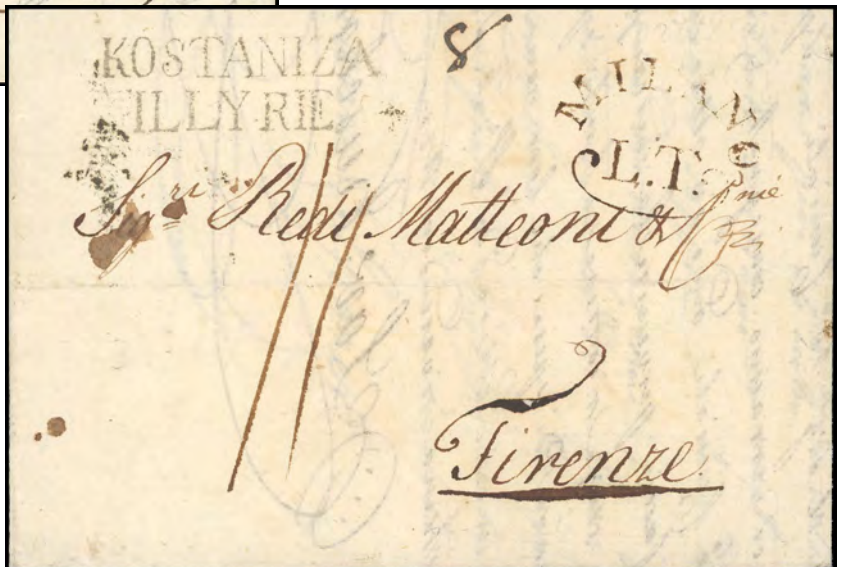 KOSTANIZA
ILLYRIE
8
MILANO
L.T.
Sigri Redi Matteoni &
Firenze